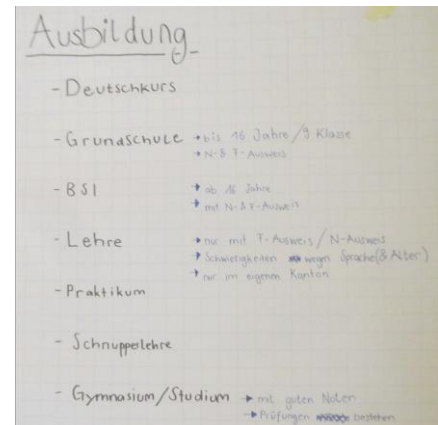 Ausbildung
- Deutschkurs
- Grundschule → bis 16 Jahre/9 Klasse
→ N-& F-Ausweis
- BSI → ab 16 Jahre
→ mit N-& F-Ausweis
- Lehre → nur mit F-Ausweis/N-Ausweis
→ Schwierigkeiten wegen Sprache(& Alter)
→ nur im eigenen Kanton
- Praktikum
- Schnupperlehre
- Gymnasium/Studium → mit guten Noten
→ Prüfungen bestehen